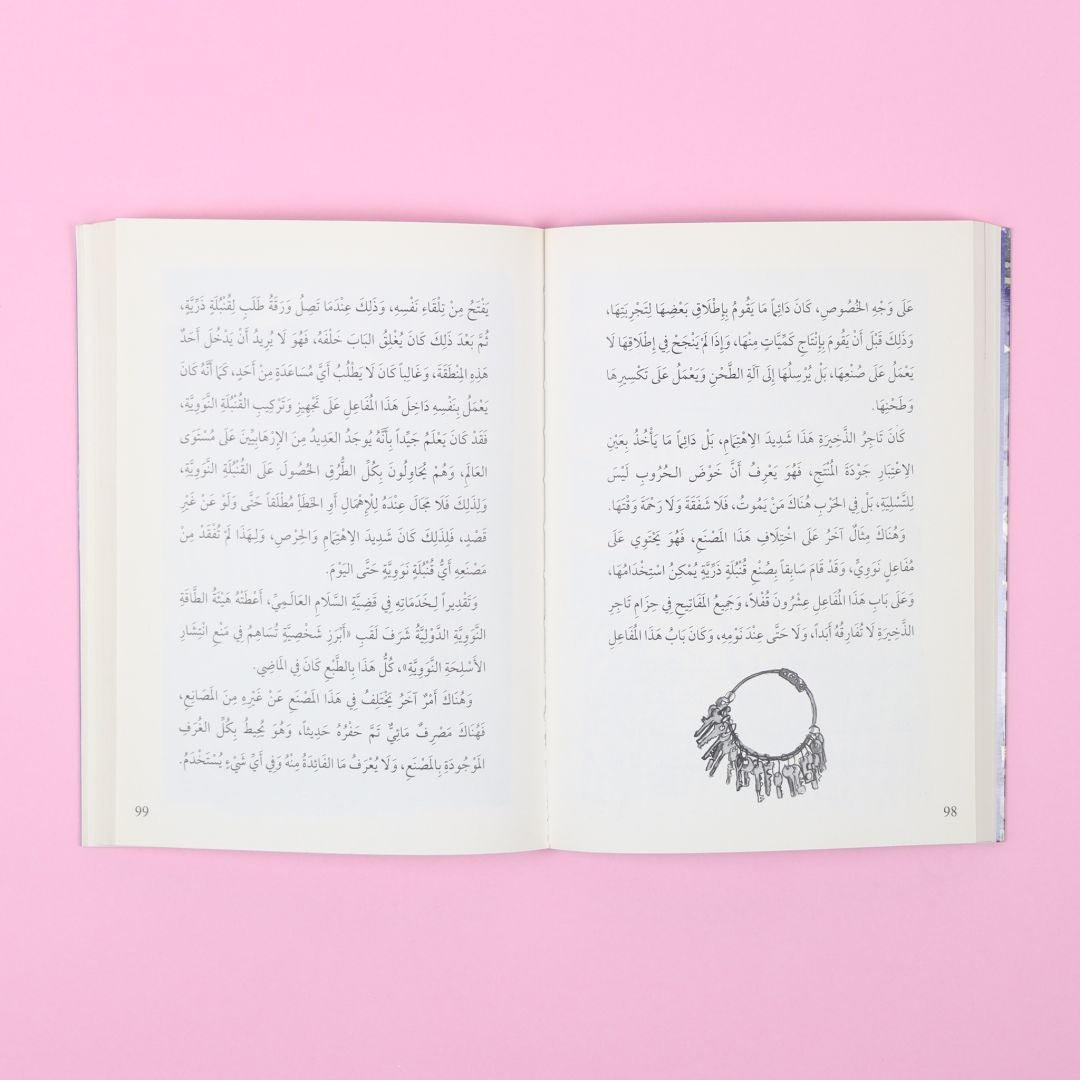 عَلَى وَجْهِ الخُصُوصِ، كَانَ دَائِماً مَا يَقُومُ بِإِطْلَاقِ بَعْضِهَا لِتَجْرِبَتِهَا،
وَذَلِكَ قَبْلَ أَنْ يَقُومَ بِإِنْتَاجِ كَمِّيَّاتٍ مِنْهَا، وَإِذَا لَمْ يَنْجَحْ فِي إِطْلَاقِهَا لَا
يَعْمَلُ عَلَى صُنْعِهَا، بَلْ يُرْسِلُهَا إِلَى آلَةِ الطَّحْنِ وَيَعْمَلُ عَلَى تَكْسِيرِهَا
وَطَحْنِهَا.
كَانَ تَاجِرُ الذَّخِيرَةِ هَذَا شَدِيدَ الاِهْتِمَامِ، بَلْ دَائِماً مَا يَأْخُذُ بِعَيْنِ
الِاعْتِبَارِ جَوْدَةَ المُنْتَجِ، فَهُوَ يَعْرِفُ أَنَّ خَوْضَ الـحُرُوبِ لَيْسَ
لِلتَّسْلِيَةِ، بَلْ فِي الحَرْبِ هُنَاكَ مَنْ يَمُوتُ، فَلَا شَفَقَةَ وَلَا رَحْمَةَ وَقْتَهَا.
وَهُنَاكَ مِثَالٌ آخَرُ عَلَى اخْتِلَافِ هَذَا المَصْنَعِ، فَهُوَ يَحْتَوِي عَلَى
مُفَاعِلٍ نَوَوِيٍّ، وَقَدْ قَامَ سَابِقاً بِصُنْعِ قُنْبُلَةٍ ذَرِّيَّةٍ يُمْكِنُ اسْتِخْدَامُهَا،
وَعَلَى بَابِ هَذَا المُفَاعِلِ عِشْرُونَ قُفْلاً، وَجَمِيعُ المَفَاتِيحِ فِي حِزَامِ تَاجِرِ
الذَّخِيرَةِ لَا تُفَارِقُهُ أَبَداً، وَلَا حَتَّى عِنْدَ نَوْمِهِ، وَكَانَ بَابُ هَذَا المُفَاعِلِ
98
يَفْتَحُ مِنْ تِلْقَاءِ نَفْسِهِ، وَذَلِكَ عِنْدَمَا تَصِلُ وَرَقَةُ طَلَبٍ لِقُنْبُلَةٍ ذَرِّيَّةٍ،
ثُمَّ بَعْدَ ذَلِكَ كَانَ يُغْلِقُ البَابَ خَلْفَهُ، فَهُوَ لَا يُرِيدُ أَنْ يَدْخُلَ أَحَدٌ
هَذِهِ المِنْطَقَةَ، وَغَالِباً كَانَ لَا يَطْلُبُ أَيَّ مُسَاعَدَةٍ مِنْ أَحَدٍ، كَمَا أَنَّهُ كَانَ
يَعْمَلُ بِنَفْسِهِ دَاخِلَ هَذَا المُفَاعِلِ عَلَى تَجْهِيزِ وَتَرْكِيبِ القُنْبُلَةِ النَّوَوِيَّةِ،
فَقَدْ كَانَ يَعْلَمُ جَيِّداً بِأَنَّهُ يُوجَدُ العَدِيدُ مِنَ الإِرْهَابِيِّينَ عَلَى مُسْتَوَى
العَالَمِ، وَهُمْ يُحَاوِلُونَ بِكُلِّ الطُّرُقِ الحُصُولَ عَلَى القُنْبُلَةِ النَّوَوِيَّةِ،
وَلِذَلِكَ فَلَا مَجَالَ عِنْدَهُ لِلْإِهْمَالِ أَوِ الخَطَأِ مُطْلَقاً حَتَّى وَلَوْ عَنْ غَيْرِ
قَصْدٍ، فَلِذَلِكَ كَانَ شَدِيدَ الاِهْتِمَامِ وَالحِرْصِ، وَلِـهَذَا لَمْ تُفْقَدْ مِنْ
مَصْنَعِهِ أَيُّ قُنْبُلَةٍ نَوَوِيَّةٍ حَتَّى اليَوْمَ.
وَتَقْدِيراً لِـخَدَمَاتِهِ فِي قَضِيَّةِ السَّلَامِ العَالَمِيِّ، أَعْطَتْهُ هَيْئَةُ الطَّاقَةِ
النَّوَوِيَّةِ الدَّوْلِيَّةُ شَرَفَ لَقَبِ «أَبْرَزِ شَخْصِيَّةٍ تُسَاهِمُ فِي مَنْعِ انْتِشَارِ
الأَسْلِحَةِ النَّوَوِيَّةِ»، كُلُّ هَذَا بِالطَّبْعِ كَانَ فِي المَاضِي.
وَهُنَاكَ أَمْرٌ آخَرُ يَخْتَلِفُ فِي هَذَا المَصْنَعِ عَنْ غَيْرِهِ مِنَ المَصَانِعِ،
فَهُنَاكَ مَصْرِفٌ مَائِيٌّ تَمَّ حَفْرُهُ حَدِيثاً، وَهُوَ يُحِيطُ بِكُلِّ الغُرَفِ
المَوْجُودَةِ بِالمَصْنَعِ، وَلَا يُعْرَفُ مَا الفَائِدَةُ مِنْهُ وَفِي أَيِّ شَيْءٍ يُسْتَخْدَمُ.
99